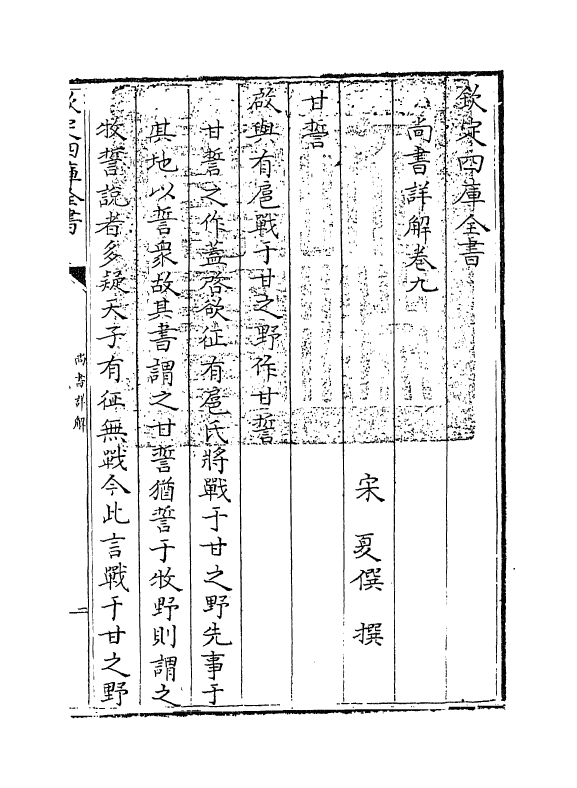 欽定四庫全書
尚書詳解卷九
宋 夏僎 撰
甘誓
啟與有扈戰于甘之野作甘誓
甘誓之作蓋啓欲征有扈氏將戰于甘之野先事于
其地以誓衆故其書謂之甘誓猶誓于牧野則謂之
牧誓說者多疑天子有征無戰今此言戰于甘之野
欽定四庫全書
尚書詳解